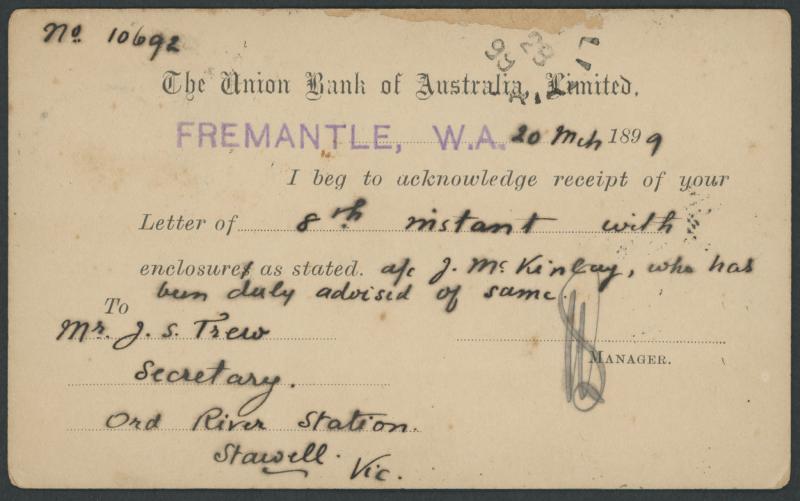 No. 10692
The Union Bank of Australia, Limited.
FREMANTLE, W.A. 20 Mch 1899
I beg to acknowledge receipt of your
Letter of 8th instant with
enclosures as stated. a/c J. McKinlay, who has
been duly advised of same.
To
Mr. J. S. Trew
MANAGER.
Secretary.
Ord River Station.
Stawell.
Vic.